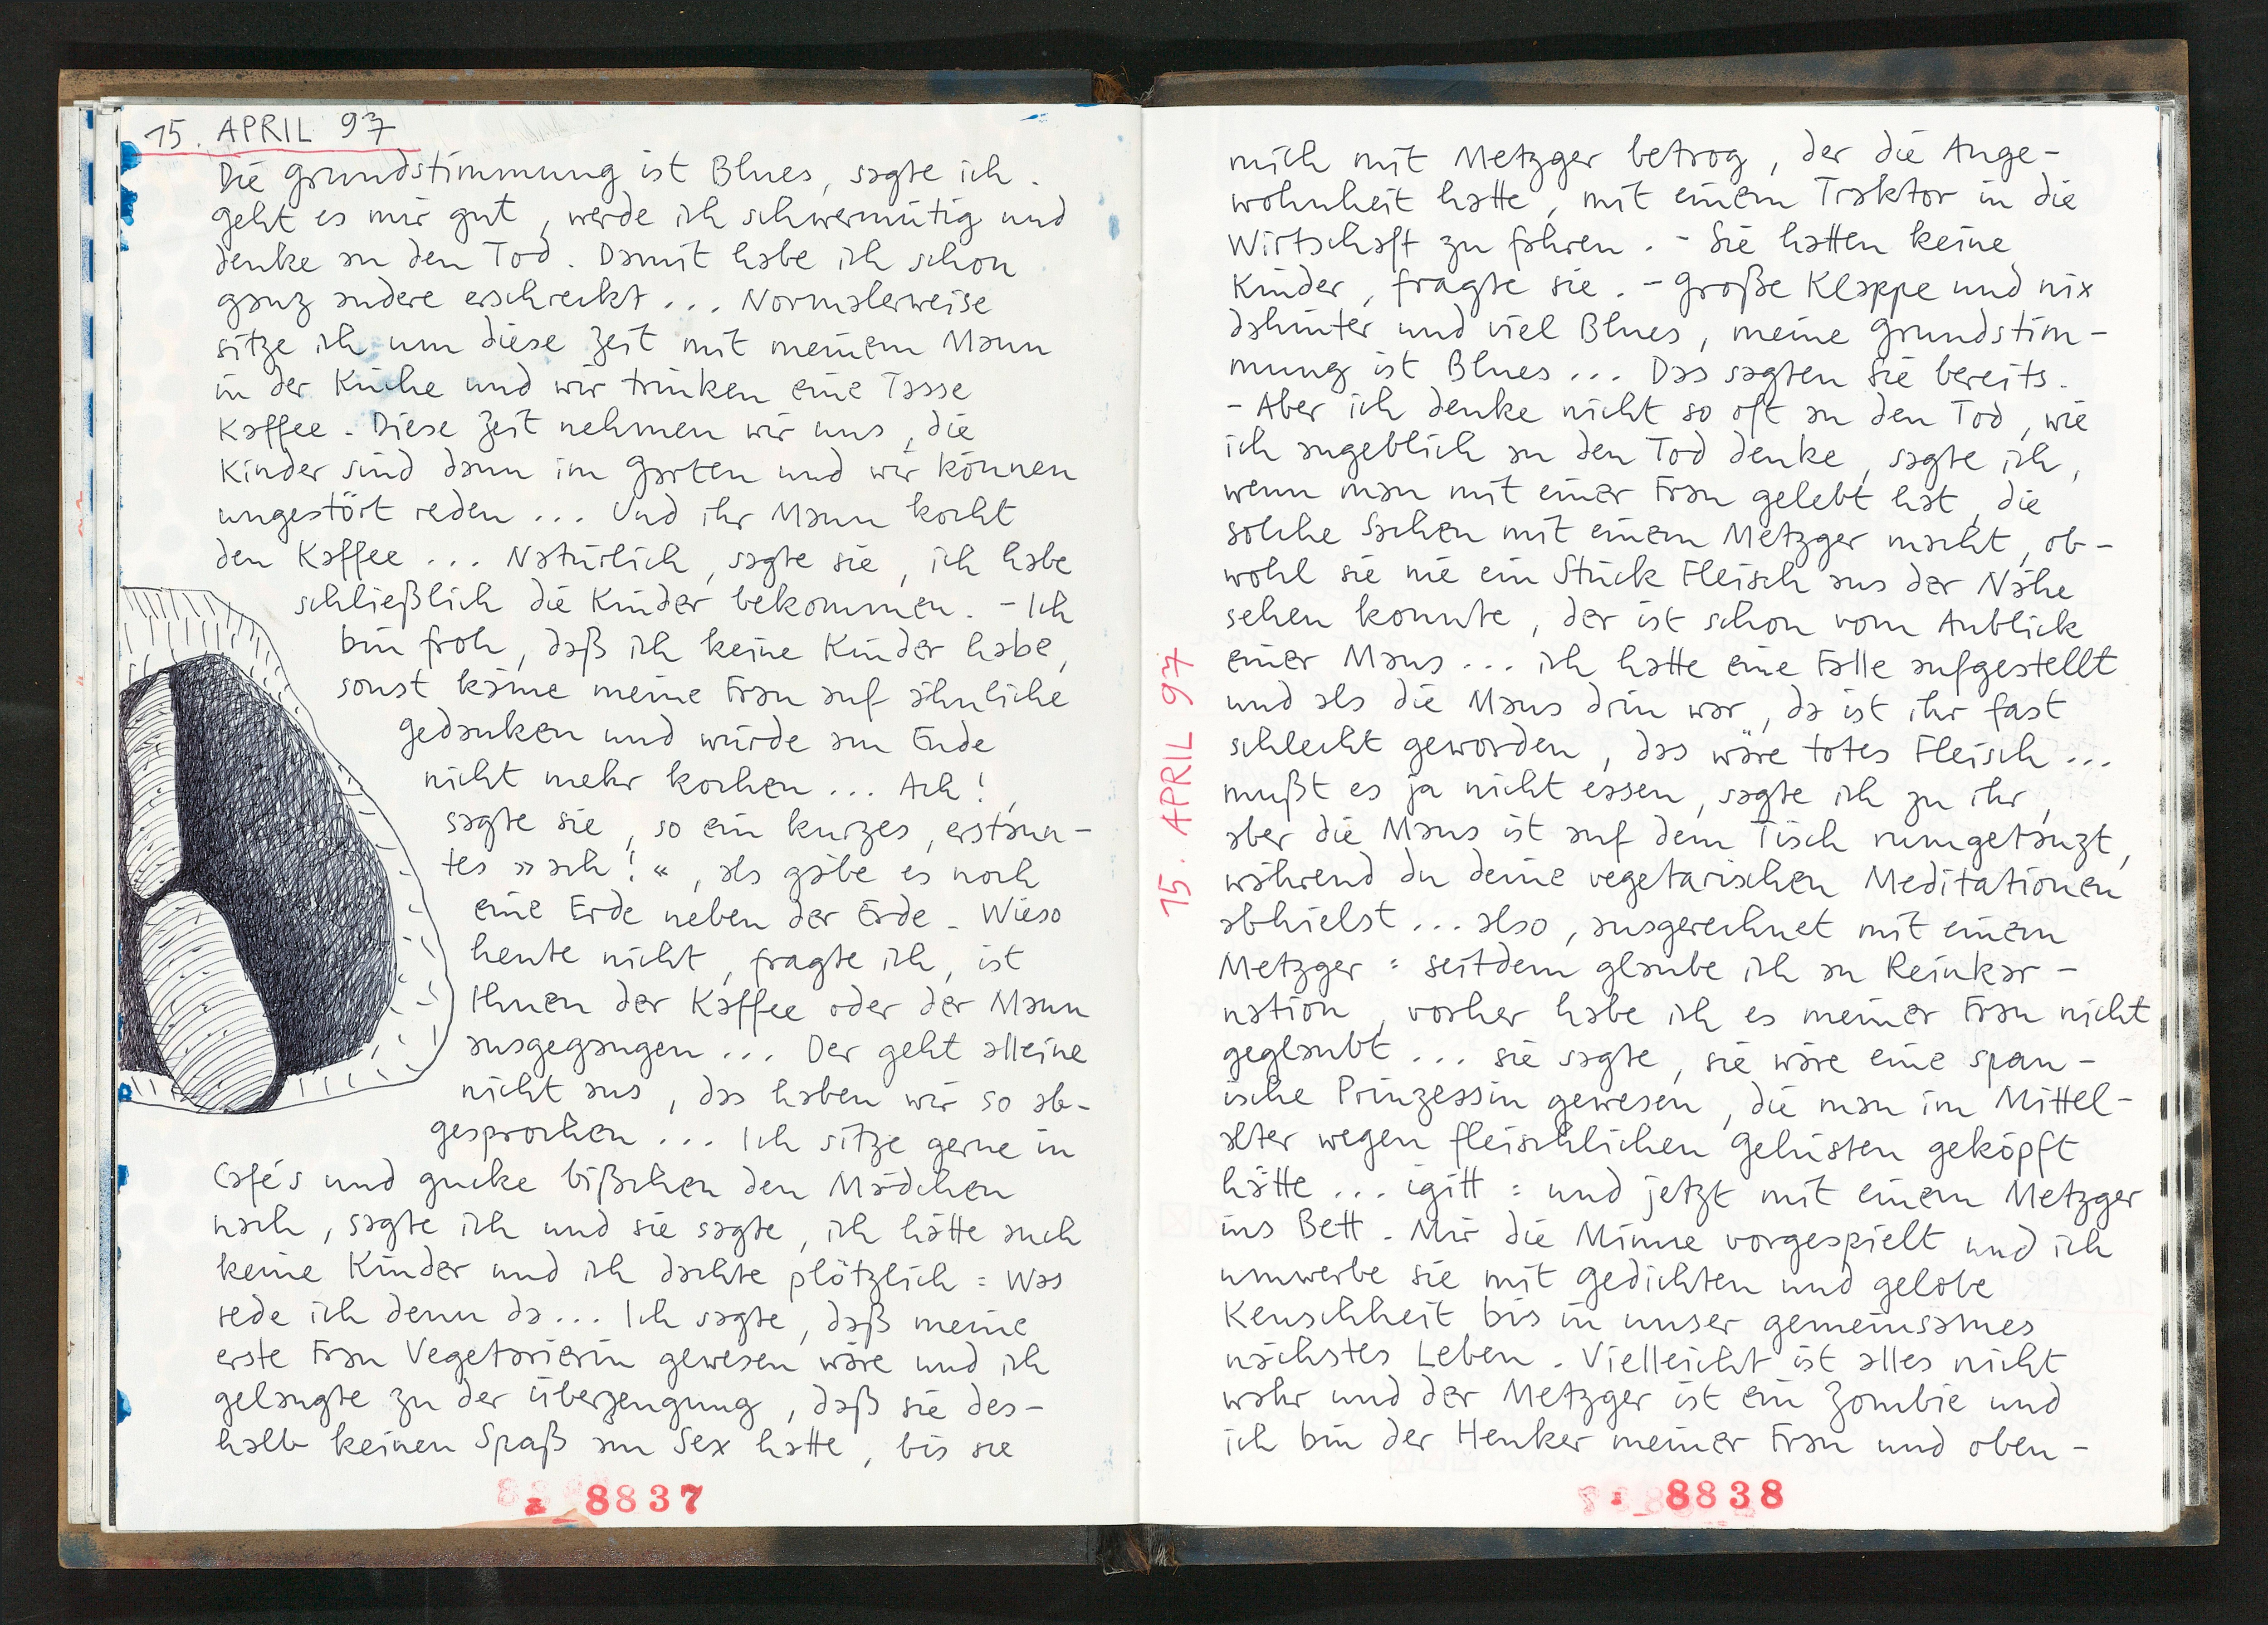 15. APRIL 97
Die Grundstimmung ist Blues, sagte ich.
Geht es mir gut, werde ich schwermütig und
denke an den Tod. Damit habe ich schon
ganz andere erschreckt... Normalerweise
sitze ich um diese Zeit mit meinem Mann
in der Küche und wir trinken eine Tasse
Kaffee. Diese Zeit nehmen wir uns, die
Kinder sind dann im Garten und wir können
ungestört reden... Und ihr Mann kocht
den Kaffee... Natürlich, sagte sie, ich habe
schließlich die Kinder bekommen. - Ich
bin froh, daß ich keine Kinder habe,
sonst käme meine Frau auf ähnliche
Gedanken und würde am Ende
nicht mehr kochen... Ach!,
sagte sie, so ein kurzes, erstaun-
tes »ach!«, als gäbe es noch
eine Erde neben der Erde. Wieso
heute nicht, fragte ich, ist
Ihnen der Kaffee oder der Mann
ausgegangen... Der geht alleine
nicht aus, das haben wir so ab-
gesprochen... Ich sitze gerne in
Cafés und gucke bißchen den Mädchen
nach, sagte ich und sie sagte, ich hätte auch
keine Kinder und ich dachte plötzlich: Was
rede ich denn da... Ich sagte, daß meine
erste Frau Vegetarierin gewesen wäre und ich
gelangte zu der Überzeugung, daß sie des-
halb keinen Spaß am Sex hatte, bis sie
8837
15. APRIL 97
mich mit Metzger betrog, der die Ange-
wohnheit hatte, mit einem Traktor in die
Wirtschaft zu fahren. - Sie hatten keine
Kinder, fragte sie. - Große Klappe und nix
dahinter und viel Blues, meine Grundstim-
mung ist Blues... Das sagten Sie bereits.
- Aber ich denke nicht so oft an den Tod, wie
ich angeblich an den Tod denke, sagte ich,
wenn man mit einer Frau gelebt hat, die
solche Sachen mit einem Metzger macht, ob-
wohl sie nie ein Stück Fleisch aus der Nähe
sehen konnte, der ist schon vom Anblick
einer Maus... ich hatte eine Falle aufgestellt
und als die Maus drin war, da ist ihr fast
schlecht geworden, das wäre totes Fleisch...
mußt es ja nicht essen, sagte ich zu ihr,
aber die Maus ist auf dem Tisch rumgetanzt,
während du deine vegetarischen Meditationen
abhielst... also, ausgerechnet mit einem
Metzger: seitdem glaube ich an Reinkar-
nation, vorher habe ich es meiner Frau nicht
geglaubt... sie sagte, sie wäre eine span-
ische Prinzessin gewesen, die man im Mittel-
alter wegen fleischlichen Gelüsten geköpft
hätte... igitt: und jetzt mit einem Metzger
ins Bett. Mir die Minne vorgespielt und ich
umwerbe sie mit Gedichten und gelobe
Keuschheit bis in unser gemeinsames
nächstes Leben. Vielleicht ist alles nicht
wahr und der Metzger ist ein Zombie und
ich bin der Henker meiner Frau und oben-
8838